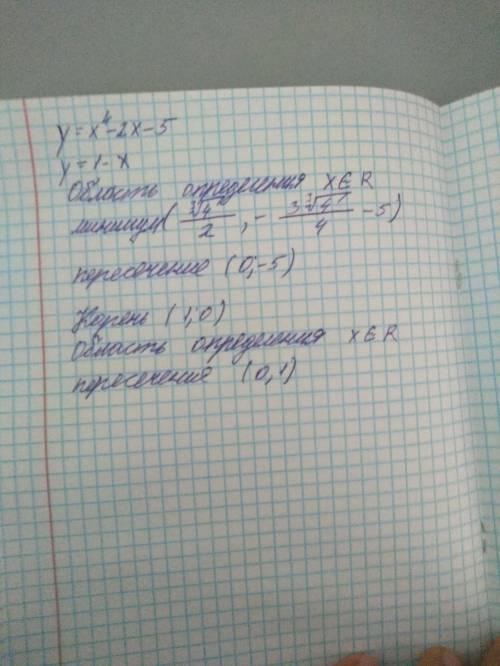 y = x⁴ - 2x - 5
y = 1 - x
Область определения x ∈ R
минимум ( ∛4 / 2 , - 3∛4 / 4 - 5)
пересечение (0; -5)
Корень (1; 0)
Область определения x ∈ R
пересечение (0, 1)